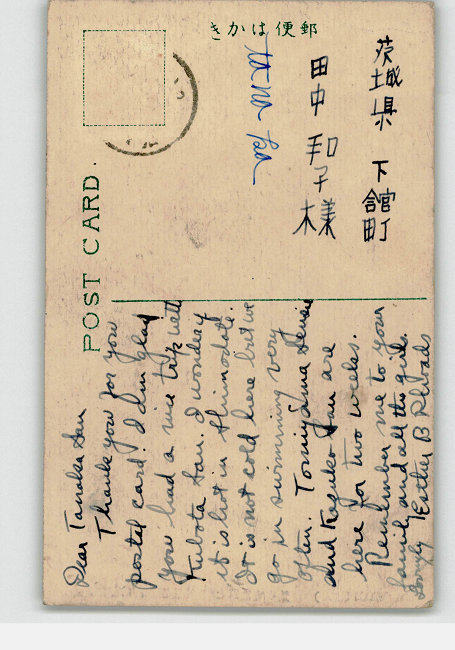 郵便はかき
茨城県 下館町
田中 和子様
POST CARD.
Dear Tanaka San
Thank you for your
postal card. I am glad
you had a nice trip with
Kubota San. I wonder if
it is hot in Shimodate.
It is not cold here but we
go in swimming very
often. Tomiyama Sensei
and Keiko San are
here for two weeks.
Remember me to your
family and all the girls.
Lovingly Esther B Rhoads